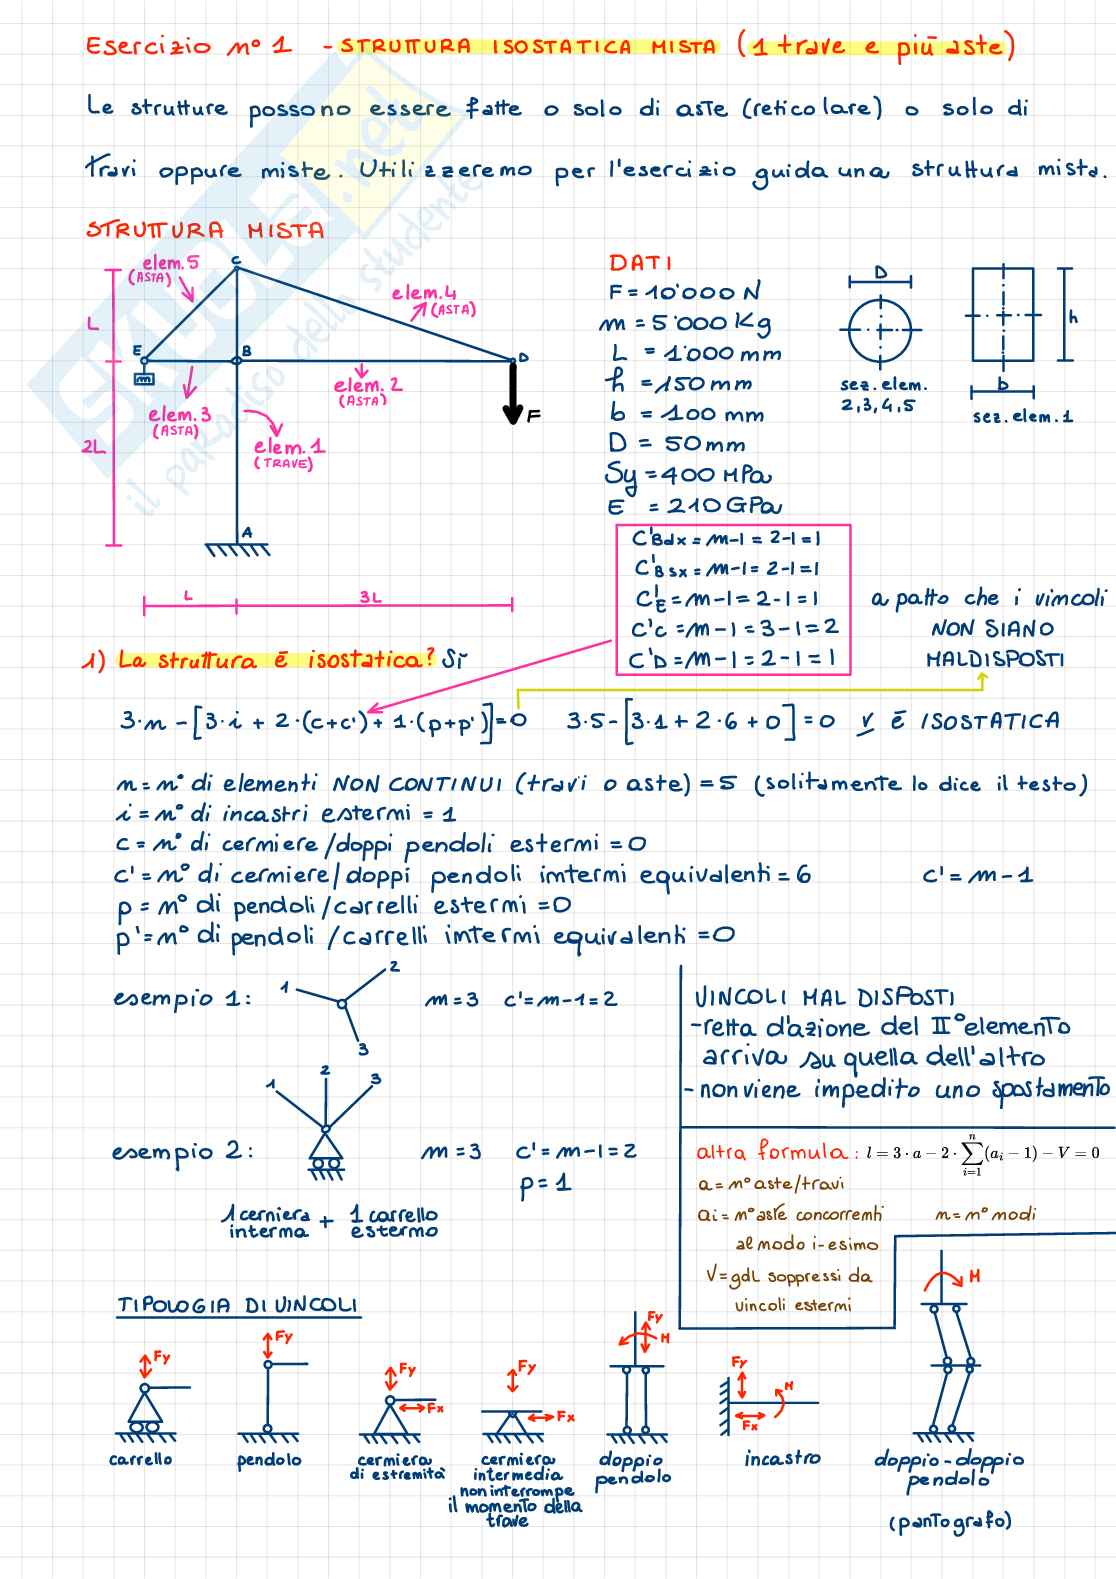 Esercizio n° 1 - STRUTTURA ISOSTATICA MISTA (1 trave e più aste)
Le strutture possono essere fatte o solo di aste (reticolare) o solo di
travi oppure miste. Utilizzeremo per l'esercizio guida una struttura mista.
STRUTTURA MISTA
C
elem.5
(ASTA)
elem.4
(ASTA)
L
E
B
D
m
elem.3
(ASTA)
elem.2
(ASTA)
F
2L
elem.1
(TRAVE)
A
L
3L
SKUOLA.net
il paradiso dello studente
DATI
F = 10'000 N
m = 5'000 Kg
L = 1'000 mm
h = 150 mm
b = 100 mm
D = 50 mm
Sy = 400 MPa
E = 210 GPa
D
sez. elem.
2,3,4,5
h
b
sez. elem. 1
C'Bdx = m-1 = 2-1 = 1
C'Bsx = m-1 = 2-1 = 1
C'E = m-1 = 2-1 = 1
C'C = m-1 = 3-1 = 2
C'D = m-1 = 2-1 = 1
a patto che i vincoli
NON SIANO
MALDISPOSTI
1) La struttura è isostatica? Sì
3·n - [3·i + 2·(c+c') + 1·(p+p')] = 0 3·5 - [3·1 + 2·6 + 0] = 0 v È ISOSTATICA
n = n° di elementi NON CONTINUI (travi o aste) = 5 (solitamente lo dice il testo)
i = n° di incastri esterni = 1
c = n° di cerniere/doppi pendoli esterni = 0
c' = n° di cerniere/doppi pendoli interni equivalenti = 6 c' = m-1
p = n° di pendoli/carrelli esterni = 0
p' = n° di pendoli/carrelli interni equivalenti = 0
esempio 1: 1 2 3 m = 3 c' = m-1 = 2
esempio 2: 1 2 3 m = 3 c' = m-1 = 2
p = 1
1 cerniera interna + 1 carrello esterno
VINCOLI MAL DISPOSTI
- retta d'azione del II° elemento
arriva su quella dell'altro
- non viene impedito uno spostamento
altra formula: l = 3·a - 2·∑_{i=1}^{n}(a_i - 1) - V = 0
a = n° aste/travi
ai = n° aste concorrenti n = n° nodi
al nodo i-esimo
V = gdl soppressi da
vincoli esterni
TIPOLOGIA DI VINCOLI
Fy
carrello
Fy
pendolo
Fy
Fx
cerniera
di estremità
Fy
Fx
cerniera
intermedia
non interrompe
il momento della
trave
Fy
M
doppio
pendolo
Fy
M
Fx
incastro
M
doppio-doppio
pendolo
(pantografo)